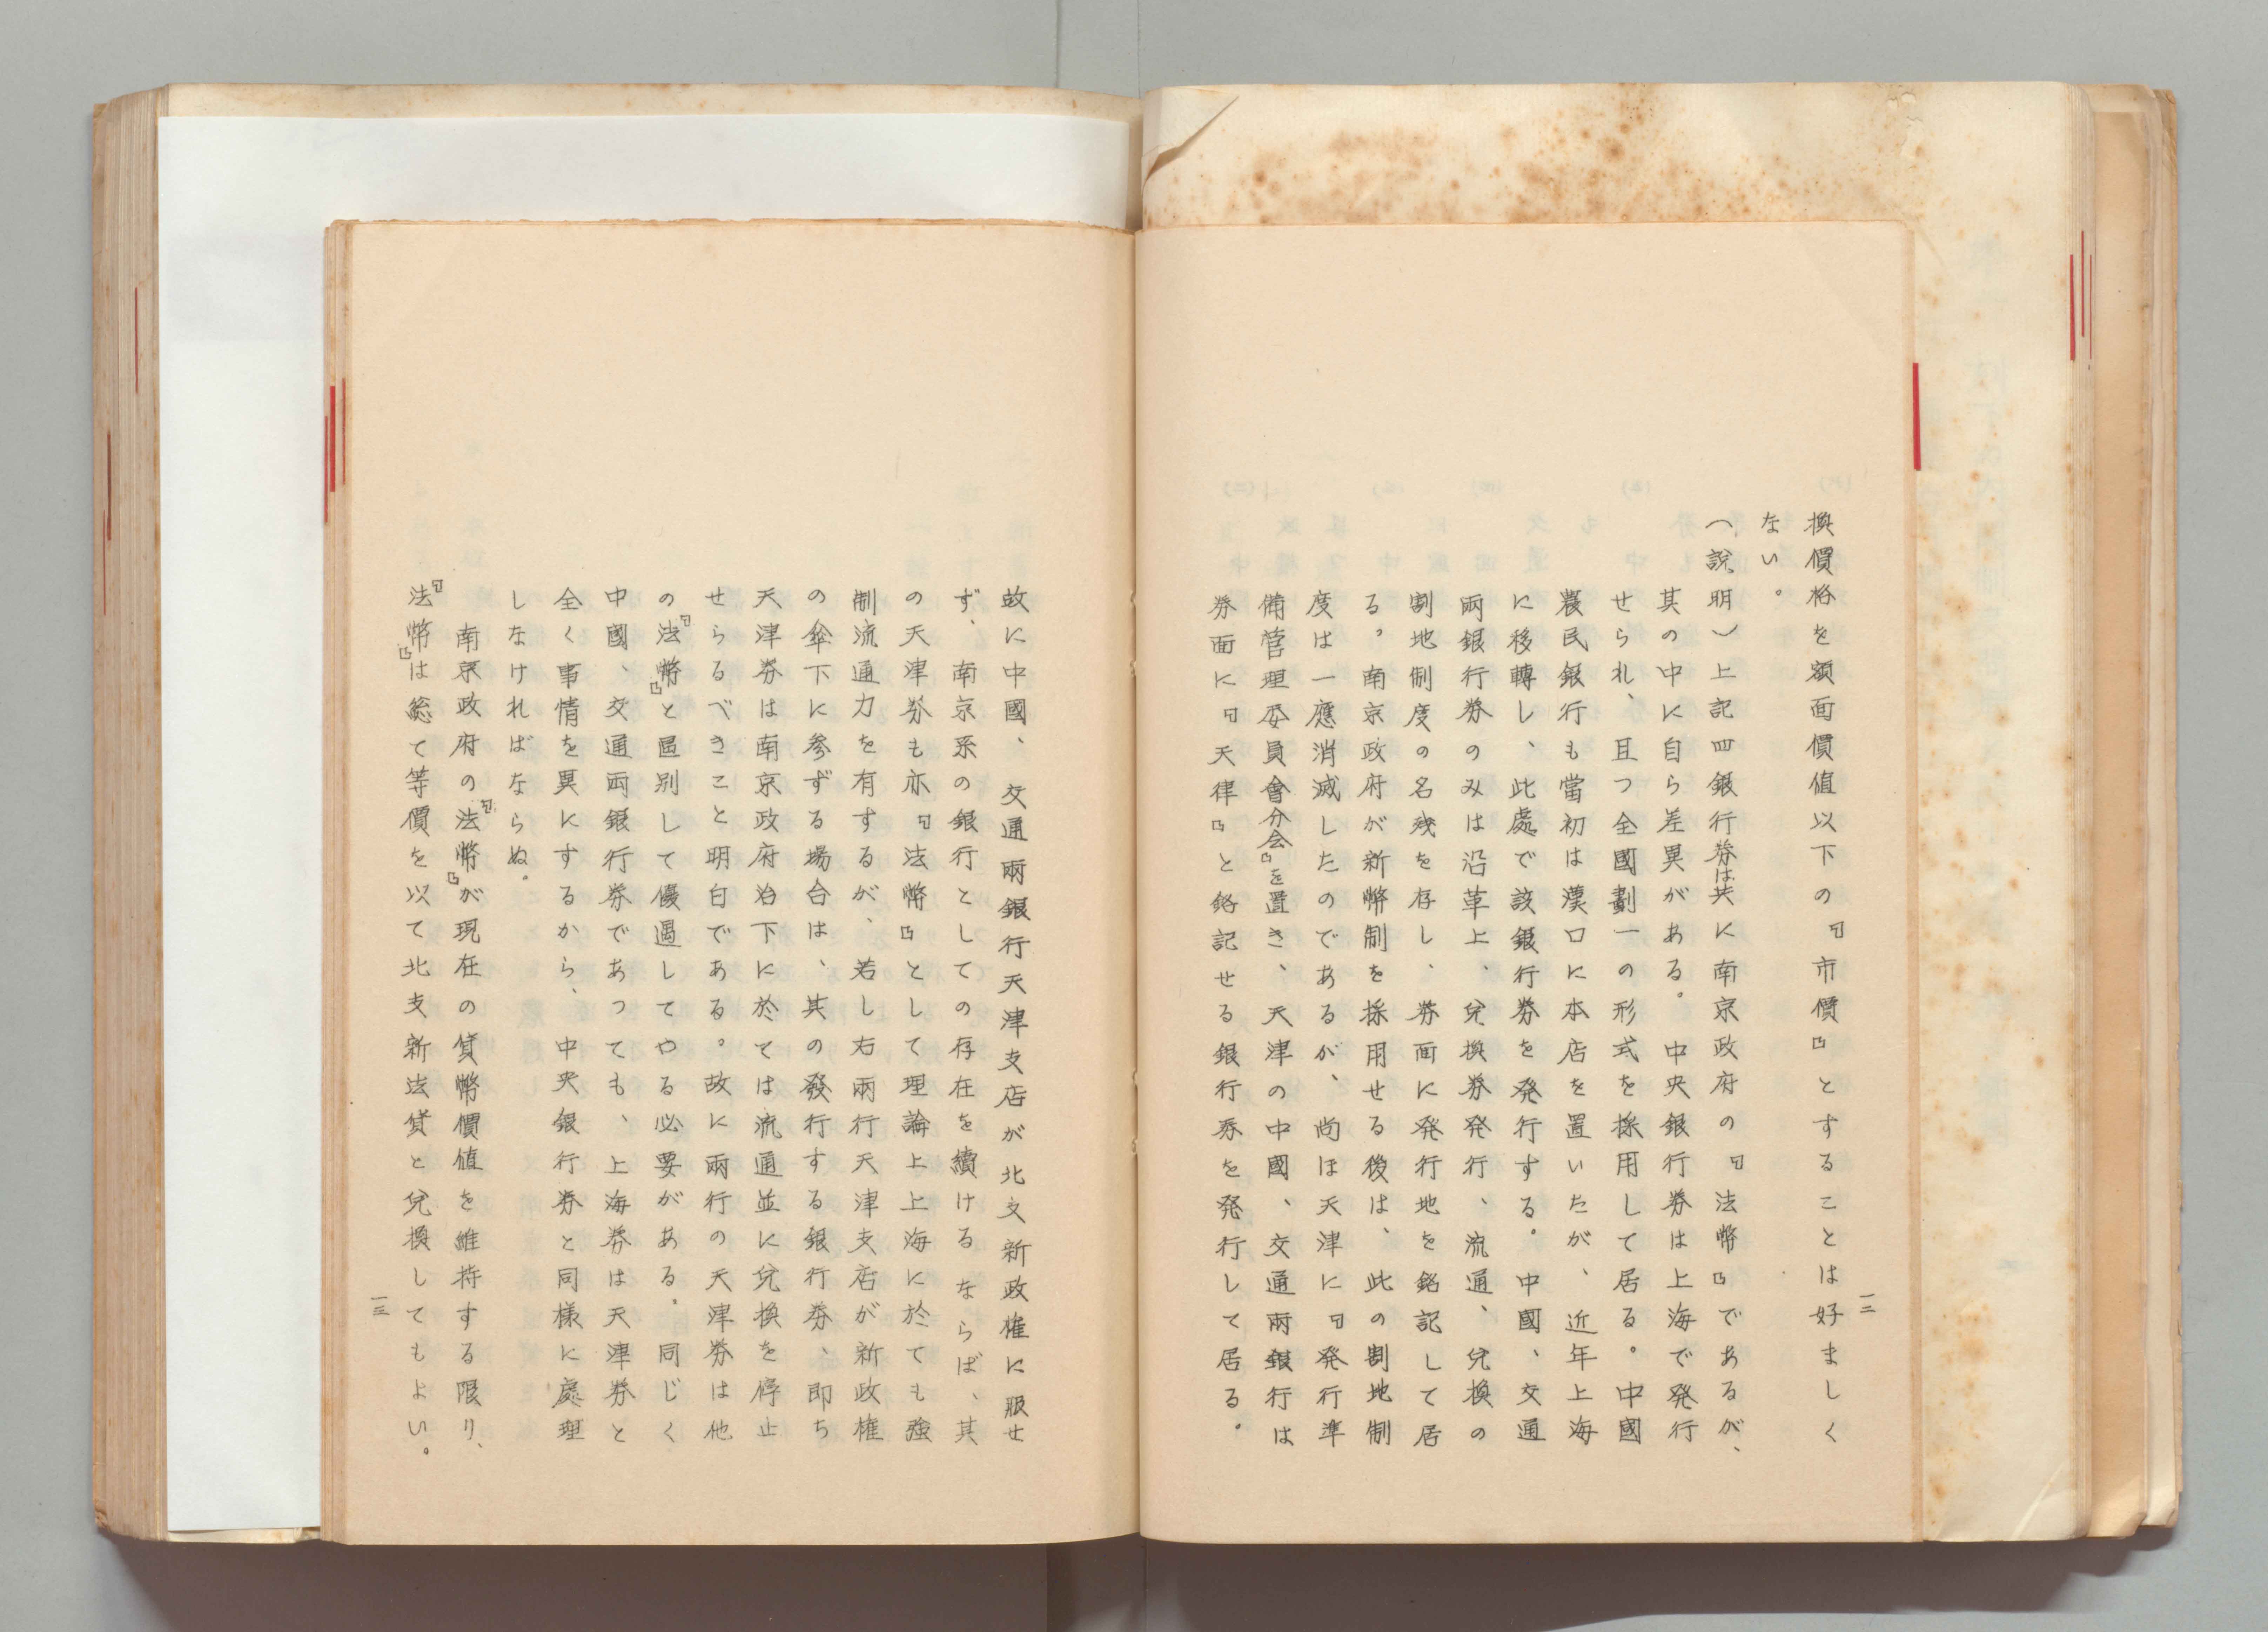 換價格を額面價値以下の『市價』とすることは好ましく
ない。
(説明)上記四銀行券は共に南京政府の『法幣』であるが、
其の中に自ら差異がある。中央銀行券は上海で発行
せられ、且つ全國劃一の形式を採用して居る。中國
農民銀行も當初は漢口に本店を置いたが、近年上海
に移轉し、此處で該銀行券を発行する。中國、交通
兩銀行券のみは沿革上、兌換券発行、流通、兌換の
割地制度の名残を存し、券面に発行地を銘記して居
る。南京政府が新幣制を採用せる後は、此の割地制
度は一應消滅したのであるが、尚ほ天津に『発行準
備管理委員會分会』を置き、天津の中國、交通兩銀行は
券面に『天律』と銘記せる銀行券を発行して居る。
一二
故に中國、交通兩銀行天津支店が北支新政権に服せ
ず、南京系の銀行としての存在を續けるならば、其
の天津券も亦『法幣』として理論上上海に於ても強
制流通力を有するが、若し右兩行天津支店が新政権
の傘下に参ずる場合は、其の發行する銀行券、即ち
天津券は南京政府治下に於ては流通並に兌換を停止
せらるべきこと明白である。故に兩行の天津券は他
の『法幣』と區別して優遇してやる必要がある。同じく
中國、交通両銀行券であつても、上海券は天津券と
全く事情を異にするから、中央銀行券と同様に處理
しなければならぬ。
南京政府の『法幣』が現在の貨幣價値を維持する限り、
『法幣』は総て等價を以て北支新法貨と兌換してもよい。
一三